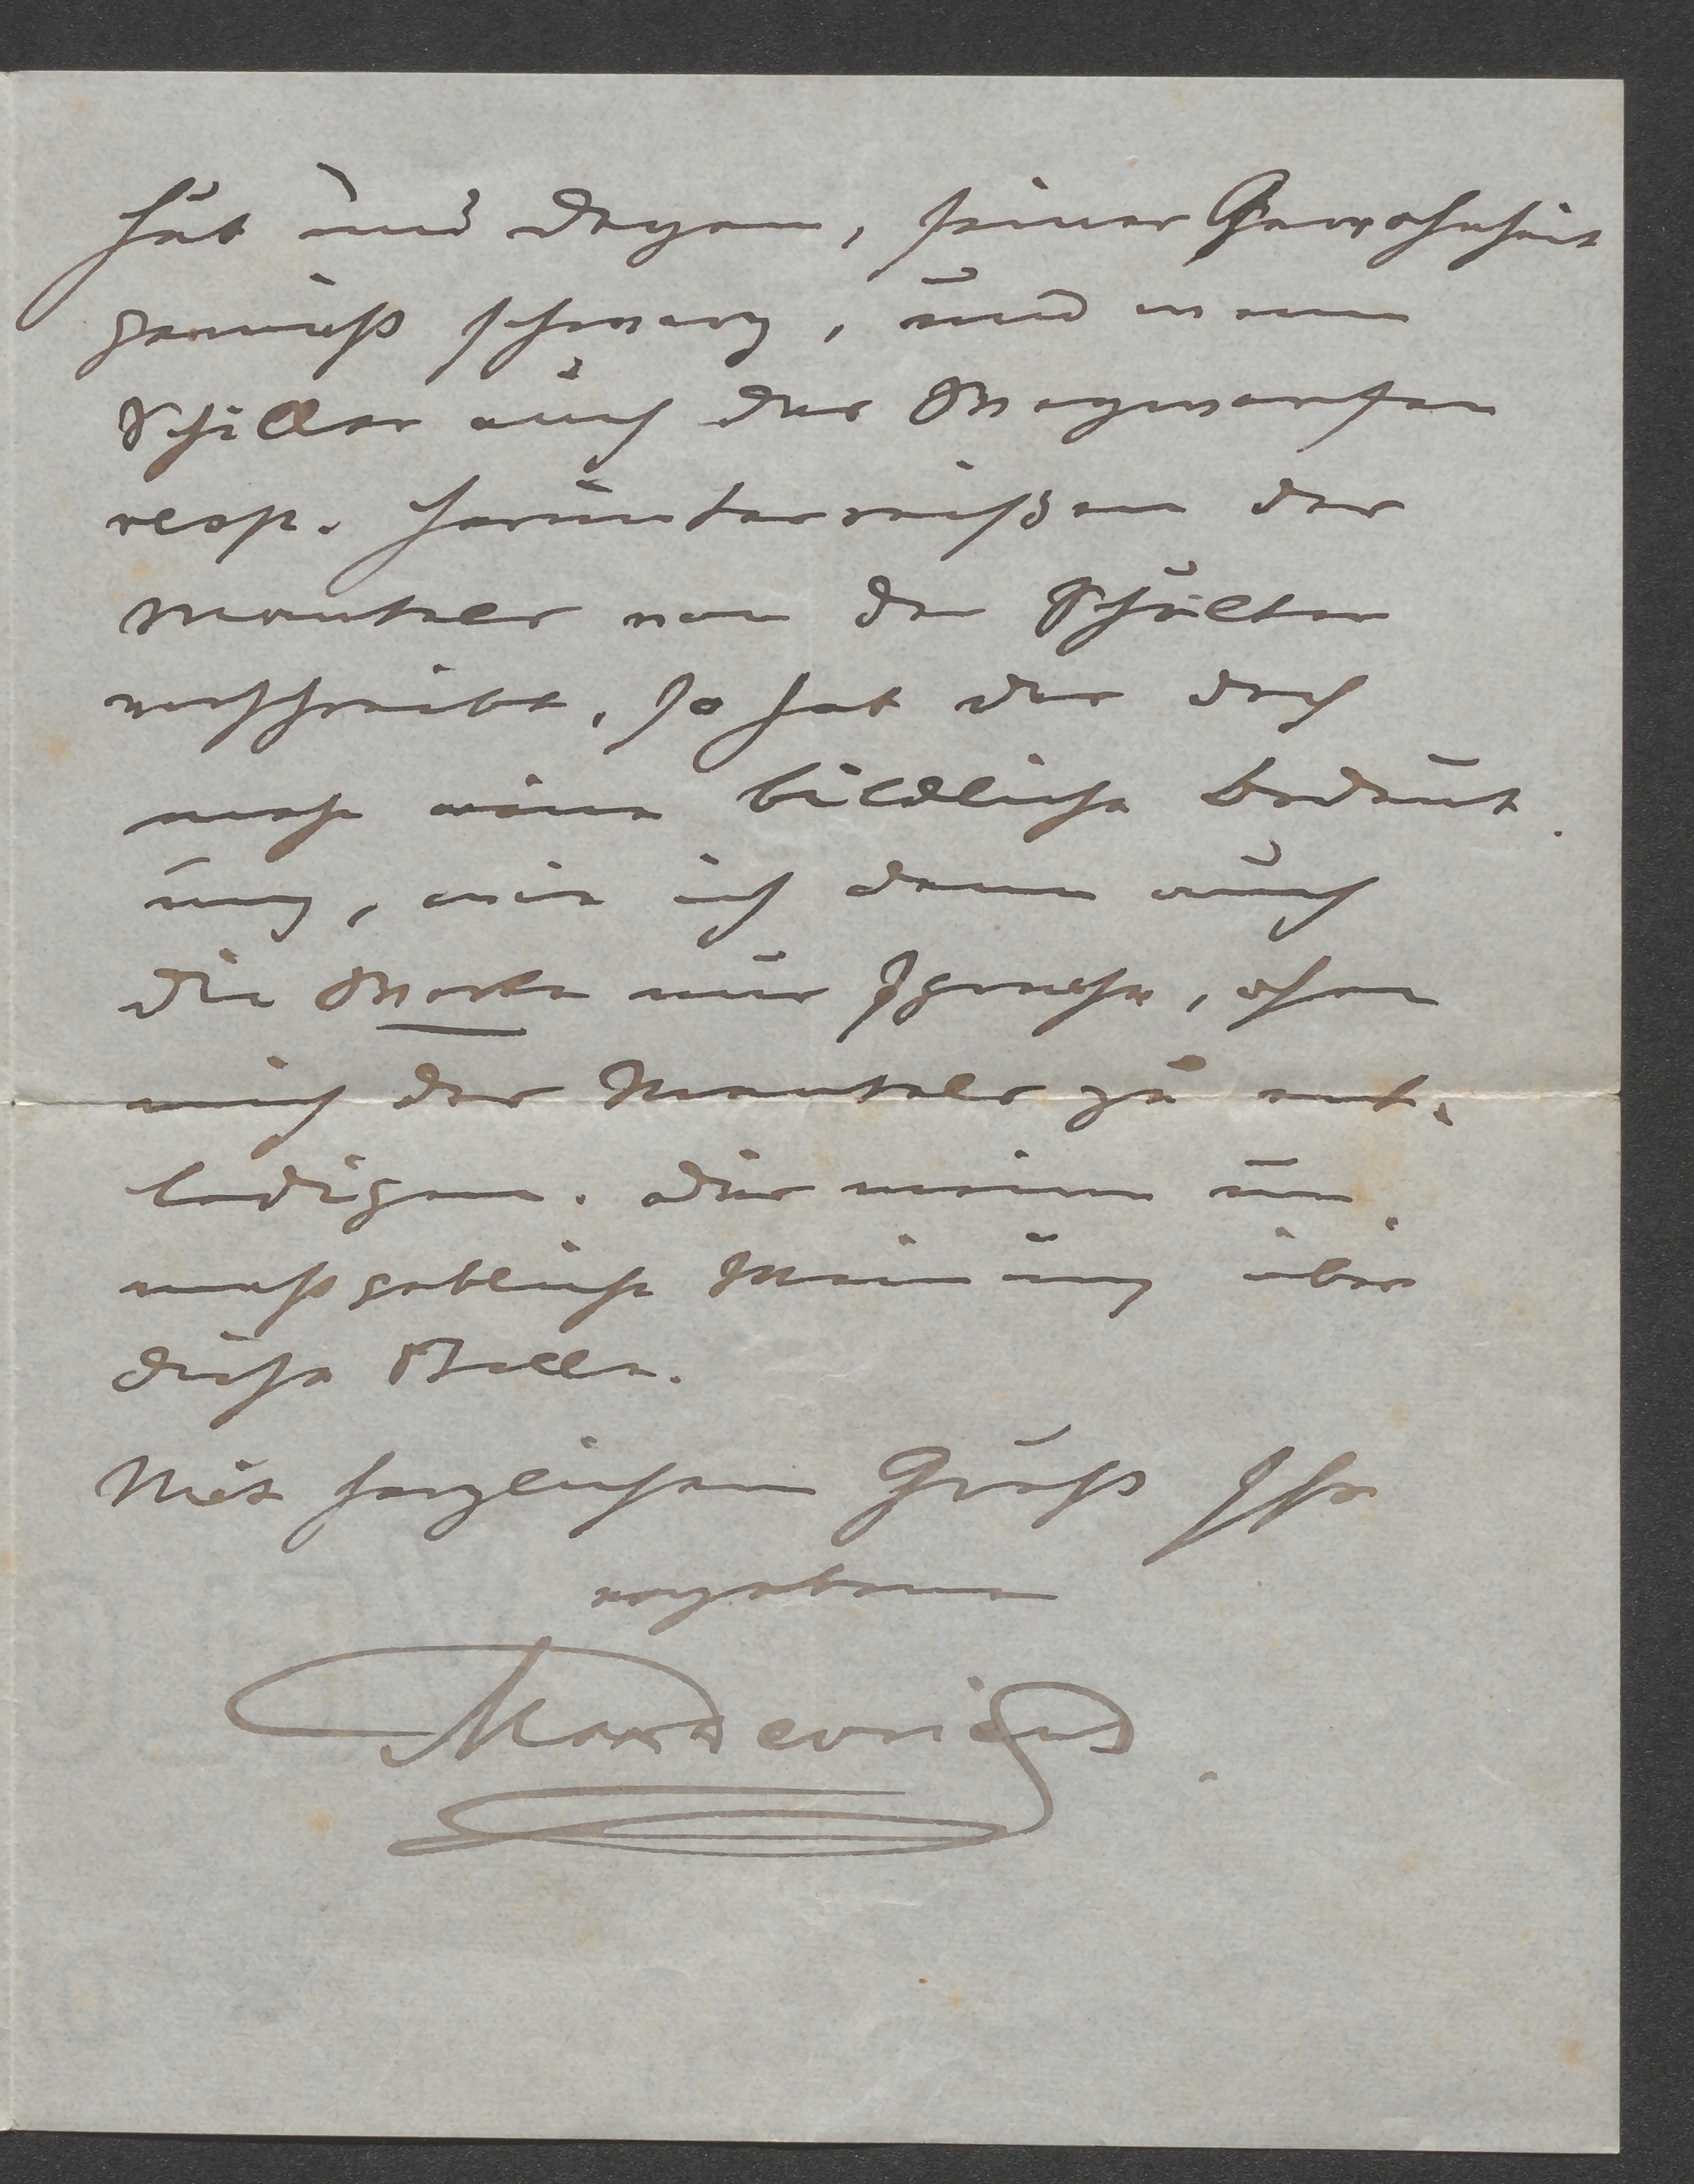 Hut und Degen, seiner Gewohnheit
gemäß schwarz, und wenn
Schiller auch das Wegwerfen
resp. Herunterreißen des
Mantels von der Schulter
vorschreibt, so hat das doch
mehr eine bildliche Bedeut-
ung, wie ich denn auch
die Worte nur spreche, ohne
mich des Mantels zu ent-
ledigen. Dies meine un-
maßgebliche Meinung über
diese Stelle.
Mit herzlichem Gruß Ihr
ergebener
Max Devrient